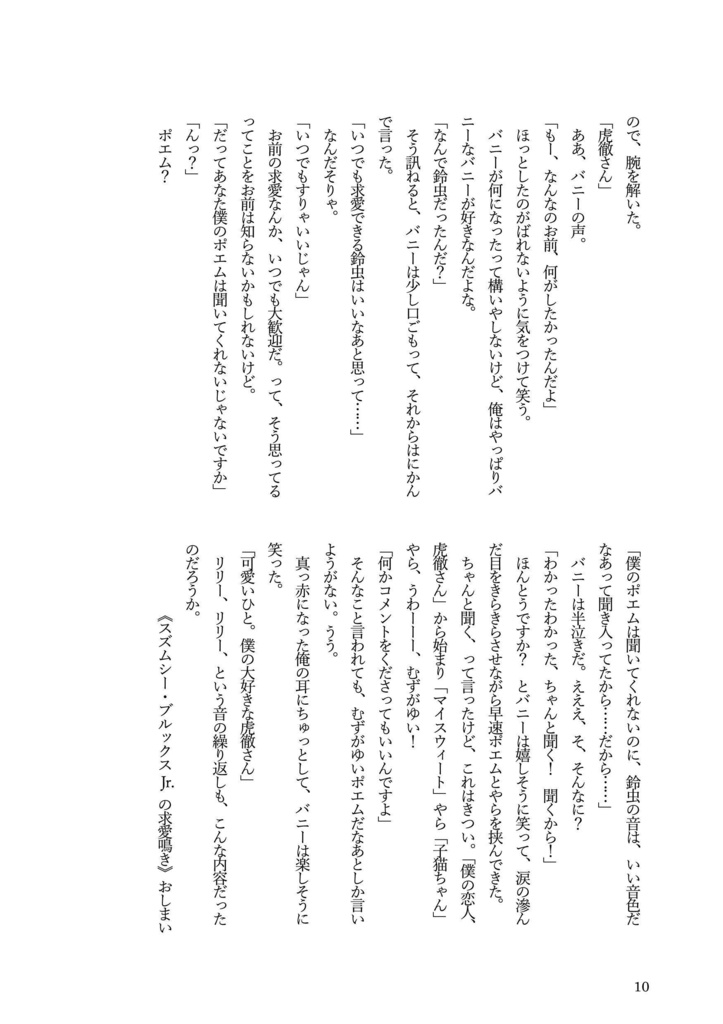 ので、腕を解いた。
「虎徹さん」
ああ、バニーの声。
「もー、なんなのお前、何がしたかったんだよ」
ほっとしたのがばれないように気をつけて笑う。
バニーが何になったって構いやしないけど、俺はやっぱりバ
ニーなバニーが好きなんだよな。
「なんで鈴虫だったんだ？」
そう訊ねると、バニーは少し口ごもって、それからはにかん
で言った。
「いつでも求愛できる鈴虫はいいなあと思って……」
なんだそりゃ。
「いつでもすりゃいいじゃん」
お前の求愛なんか、いつでも大歓迎だ。って、そう思ってる
ってことをお前は知らないかもしれないけど。
「だってあなた僕のポエムは聞いてくれないじゃないですか」
「んっ？」
ポエム？
「僕のポエムは聞いてくれないのに、鈴虫の音は、いい音色だ
なあって聞き入ってたから……だから……」
バニーは半泣きだ。えええ、そ、そんなに？
「わかったわかった、ちゃんと聞く！　聞くから！」
ほんとうですか？　とバニーは嬉しそうに笑って、涙の滲ん
だ目をきらきらさせながら早速ポエムとやらを挟んできた。
ちゃんと聞く、って言ったけど、これはきつい。「僕の恋人、
虎徹さん」から始まり「マイスウィート」やら「子猫ちゃん」
やら、うわーーー、むずがゆい！
「何かコメントをくださってもいいんですよ」
そんなこと言われても、むずがゆいポエムだなあとしか言い
ようがない。うう。
真っ赤になった俺の耳にちゅっとして、バニーは楽しそうに
笑った。
「可愛いひと。僕の大好きな虎徹さん」
リリリー、リリリー、という音の繰り返しも、こんな内容だった
のだろうか。
《スズムシー・ブルックス Jr. の求愛鳴き》おしまい
10